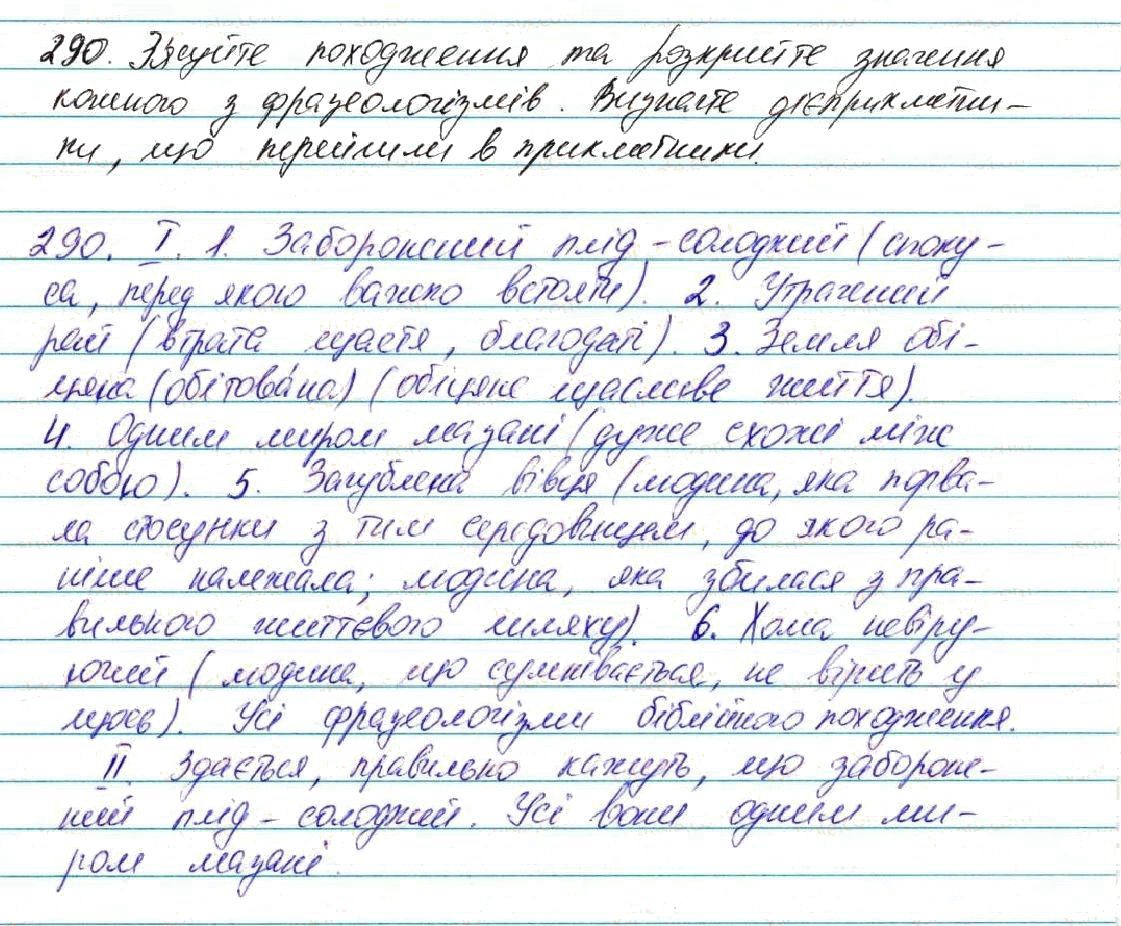 290. З'ясуйте походження та розкрийте значення
кожного з фразеологізмів. Визначте дієприкметни-
ки, що перейшли в прикметники.
290. I. 1. Заборонений плід – солодкий (споку-
са, перед якою важко встояти). 2. Утрачений
рай (втрата щастя, благодаті). 3. Земля обі-
цяна (обітова́на) (обіцяне щасливе життя).
4. Одним миром мазані (дуже схожі між
собою). 5. Загублена вівця (людина, яка порва-
ла стосунки з тим середовищем, до якого ра-
ніше належала; людина, яка збилася з пра-
вильного життєвого шляху). 6. Хома невіру-
ючий (людина, що сумнівається, не вірить у
щось). Усі фразеологізми біблійного походження.
II. Здається, правильно кажуть, що заборонe-
ний плід – солодкий. Усі вони одним ми-
ром мазані.